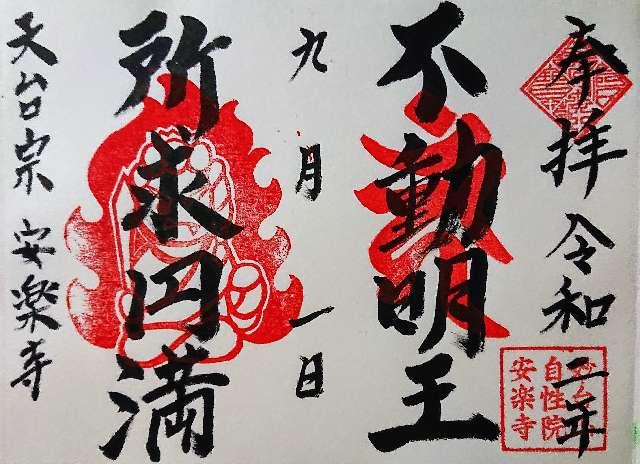 奉拝 令和二年
不動明王
九月一日
所求円満
天台宗 安楽寺
自性院
安楽寺